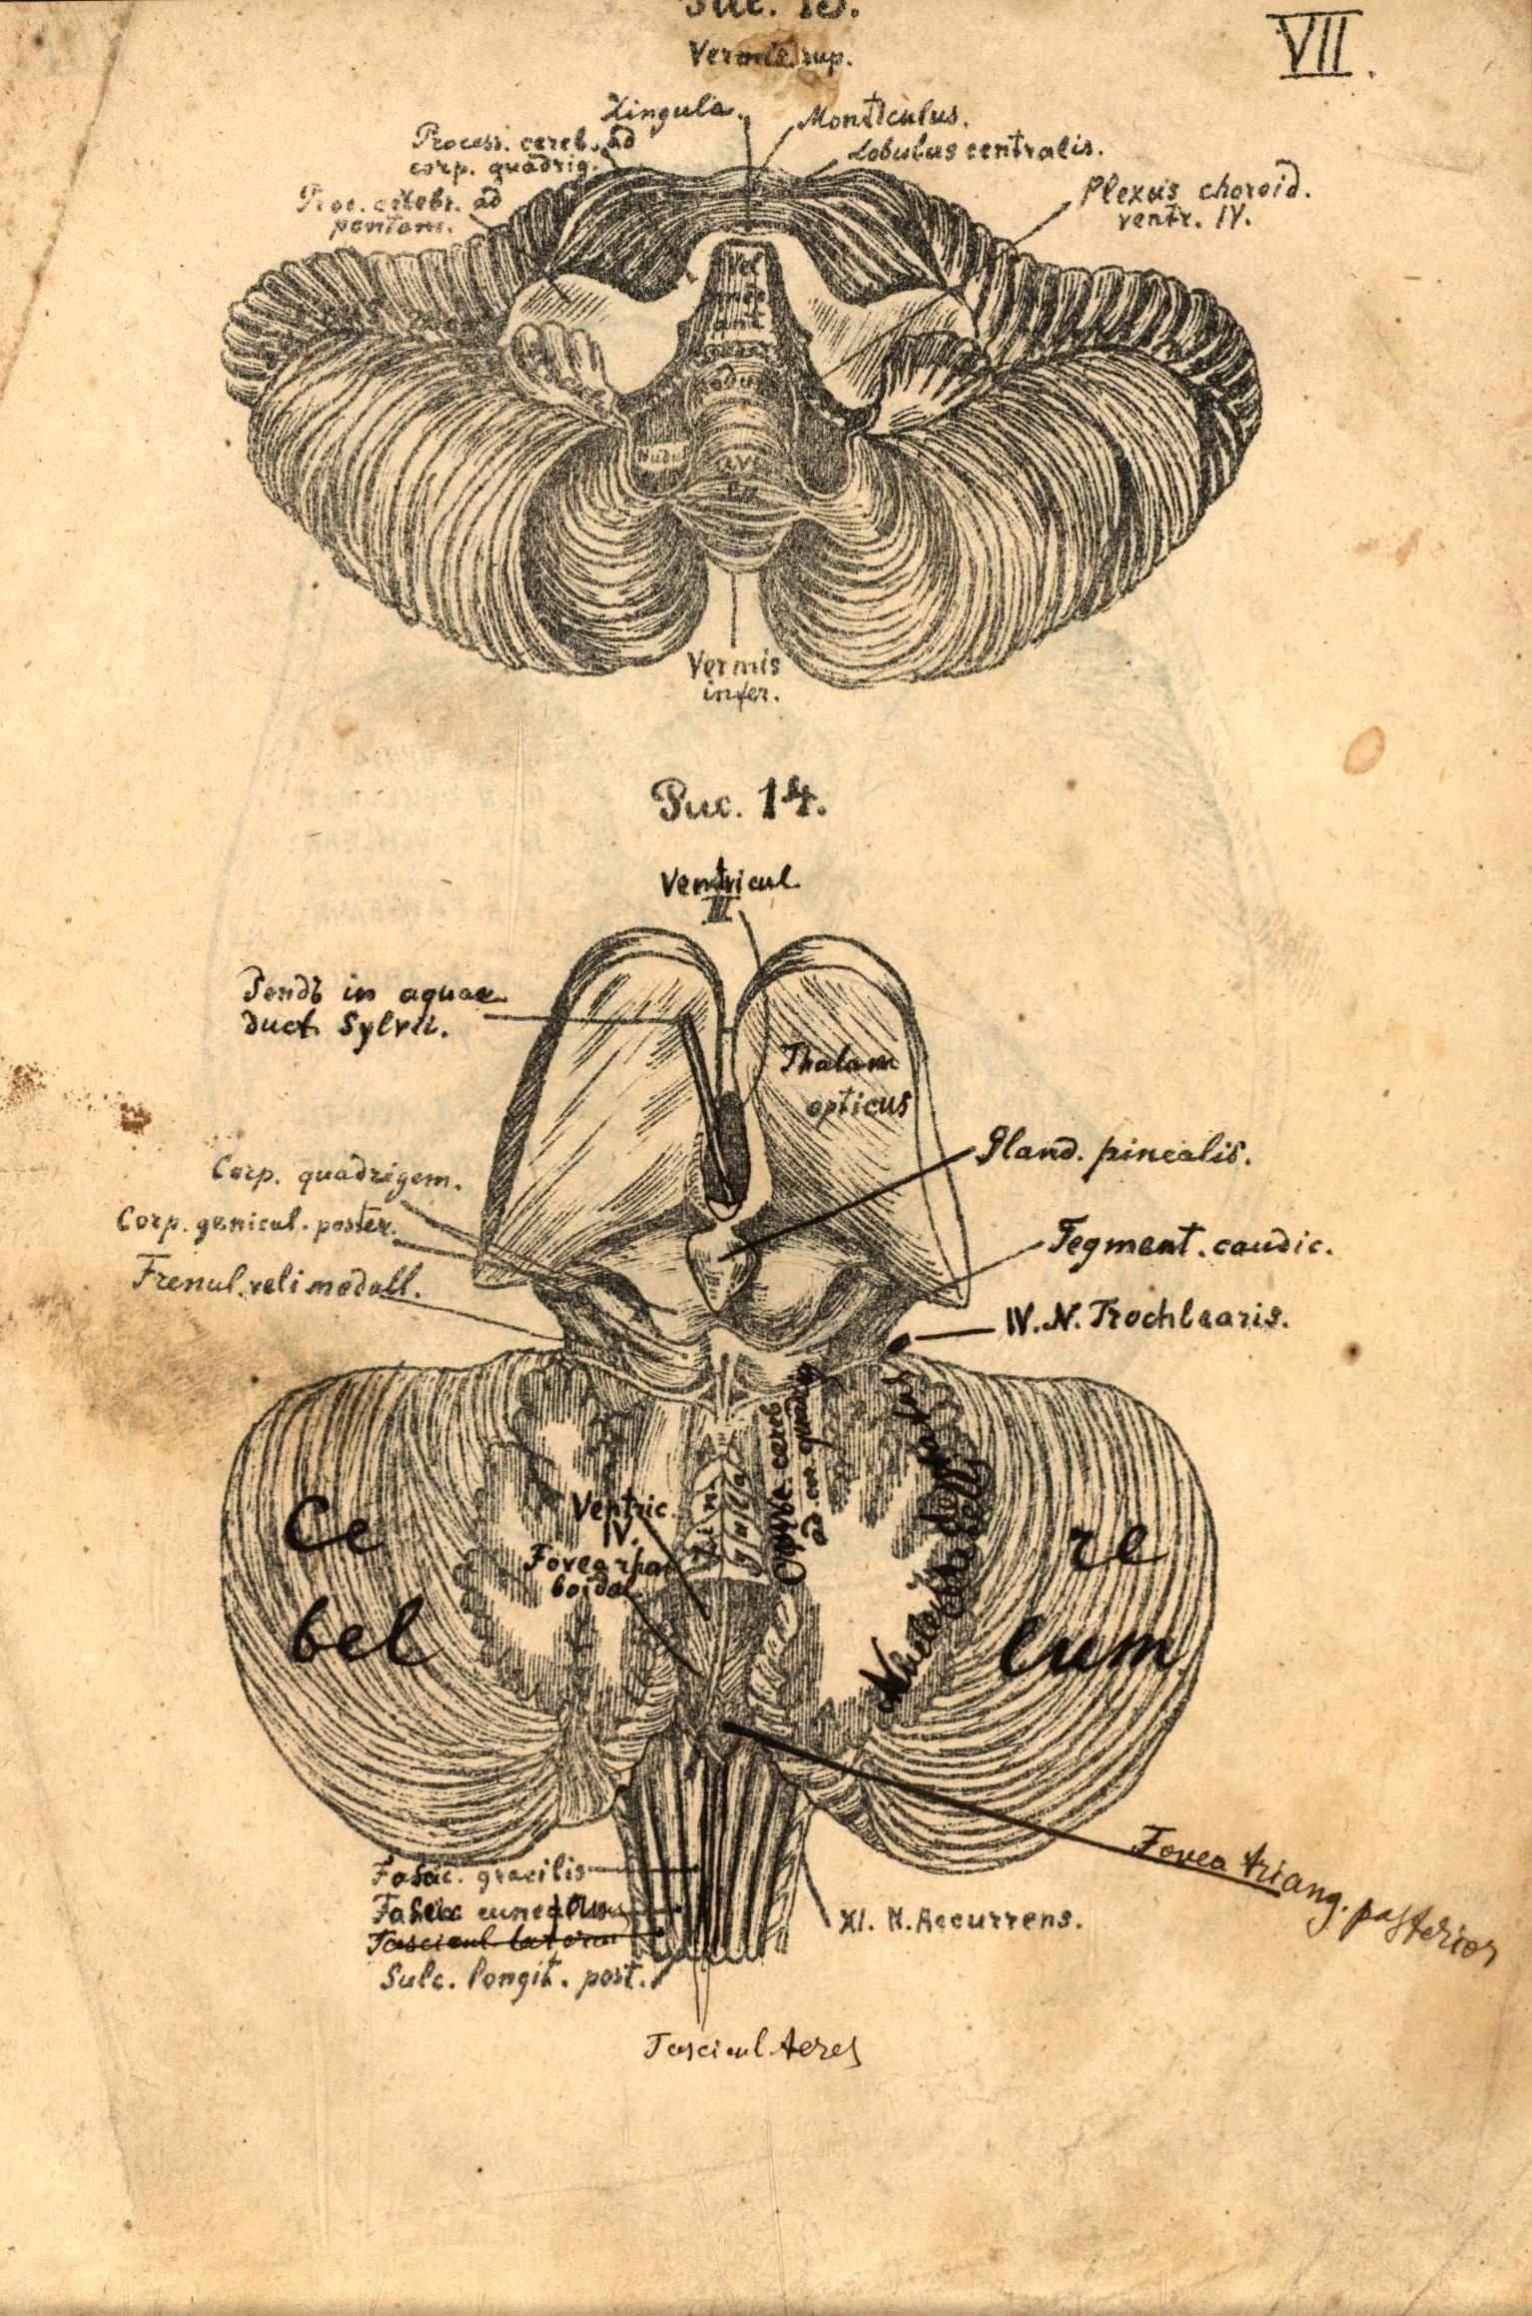 Рис. 13.
VII.
Vermis sup.
Lingula.
Monticulus.
Process. cereb. ad
corp. quadrig.
Lobulus centralis.
Proc. cerebr. ad
pontem.
Plexus choroid.
ventr. IV.
Vel
ant
Nodul
Vermis
infer.
Рис. 14.
Ventricul.
III
Зондъ in aquae
duct. Sylvii.
Thalam
opticus
Gland. pinealis.
Corp. quadrigem.
Corp. genicul. poster.
Tegment. caudic.
Frenul. veli medull.
IV. N. Trochlearis.
cereb
ad cor. quadrig
Lin
gula
Ventric.
IV.
Fovea rhom
boidal
Ce re
bel lum
Fovea triang. posterior
Fasic. gracilis
XI. N. Recurrens.
Sulc. longit. post.
Fascicul. teres